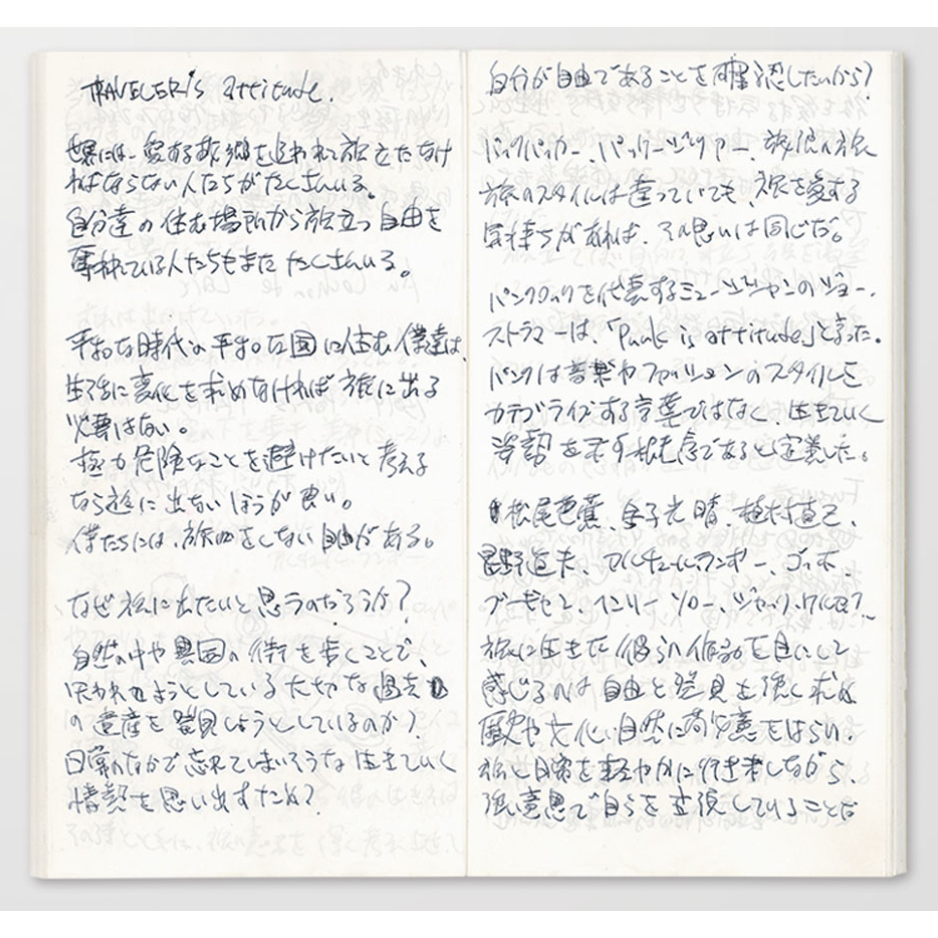 TRAVELER's attitude.
世界には愛する故郷を追われて旅立たなけ
ればならない人たちがたくさんいる。
自分達の住む場所から旅立つ自由を
奪われている人たちもまたたくさんいる。
平和な時代の平和な国に住む僕達は、
生活に変化を求めなければ旅に出る
必要はない。
極力危険なことを避けたいと考える
なら旅に出ないほうが良い。
僕たちには、旅をしない自由がある。
なぜ旅に出たいと思うのだろうか?
自然の中や異国の街を歩くことで、
失われようとしている大切な過去
の遺産を発見しようとしているのか?
日常のなかで忘れてしまいそうな生きていく
情熱を思い出すため?
自分が自由であることを確認したいから?
バックパッカー、パッケージツアー、放浪の旅
旅のスタイルは違っていても、旅を愛する
気持ちがあれば、その思いは同じだ。
パンクロックを代表するミュージシャンのジョー・
ストラマーは、「Punk is attitude」と言った。
パンクは音楽やファッションのスタイルを
カテゴライズする言葉ではなく、生きていく
姿勢を示す信念であると定義した。
松尾芭蕉、金子光晴、植村直己、
星野道夫、アルチュール・ランボー、ゴッホ、
ゴーギャン、ヘンリー・ソロー、ジャック・ケルアック
旅に生きた彼らの作品を目にして
感じるのは自由と発見を強く求め
歴史や文化、自然に敬意をはらい。
旅と日常を軽やかに行き来しながら
強い意思で自らを主張していることだ